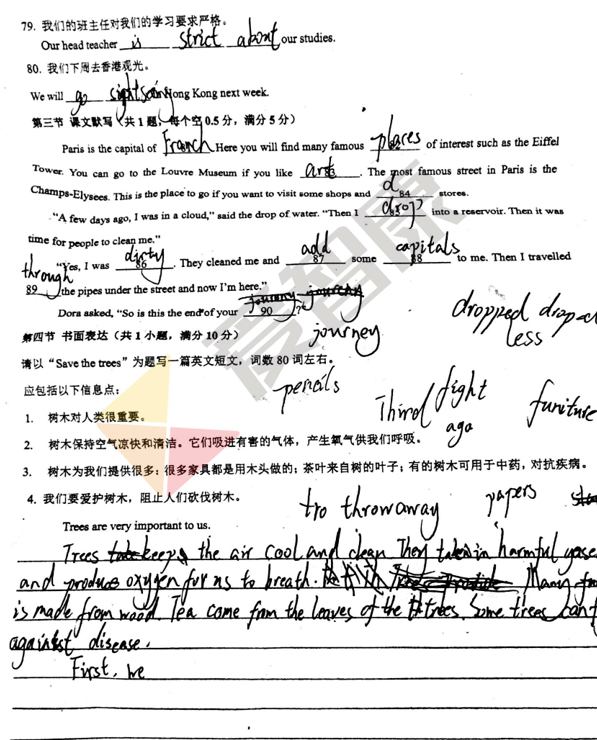 79. 我们的班主任对我们的学习要求严格。
Our head teacher is strict about our studies.
80. 我们下周去香港观光。
We will go sightseeing Hong Kong next week.
第三节 课文默写（共1题，每个空0.5分，满分5分）
Paris is the capital of Here you will find many famous places of interest such as the Eiffel
Tower. You can go to the Louvre Museum if you like art 83. The most famous street in Paris is the
Champs-Elysees. This is the place to go if you want to visit some shops and d 84 stores.
"A few days ago, I was in a cloud," said the drop of water. "Then I drop into a reservoir. Then it was
time for people to clean me."
"Yes, I was dirty 86. They cleaned me and add 87 some capitals 88 to me. Then I travelled
through 89 the pipes under the street and now I'm here."
Dora asked, "So is this the end of your 90 ?"
journey
dropped
less
第四节 书面表达（共1小题，满分10分）
请以"Save the trees"为题写一篇英文短文，词数80词左右。
应包括以下信息点：
pencils
Third fight
ago
1. 树木对人类很重要。
2. 树木保持空气凉快和清洁。它们吸进有害的气体，产生氧气供我们呼吸。
3. 树木为我们提供很多：很多家具都是用木头做的；茶叶来自树的叶子；有的树木可用于中药，对抗疾病。
4. 我们要爱护树木，阻止人们砍伐树木。
to throw away
papers
Trees are very important to us.
Trees keep the air cool and clean. They in harmful
and produce oxygen for us to breath. Many
is made from wood. Tea come from the leaves of the trees. Some trees can
against disease.
First, we
爱智康